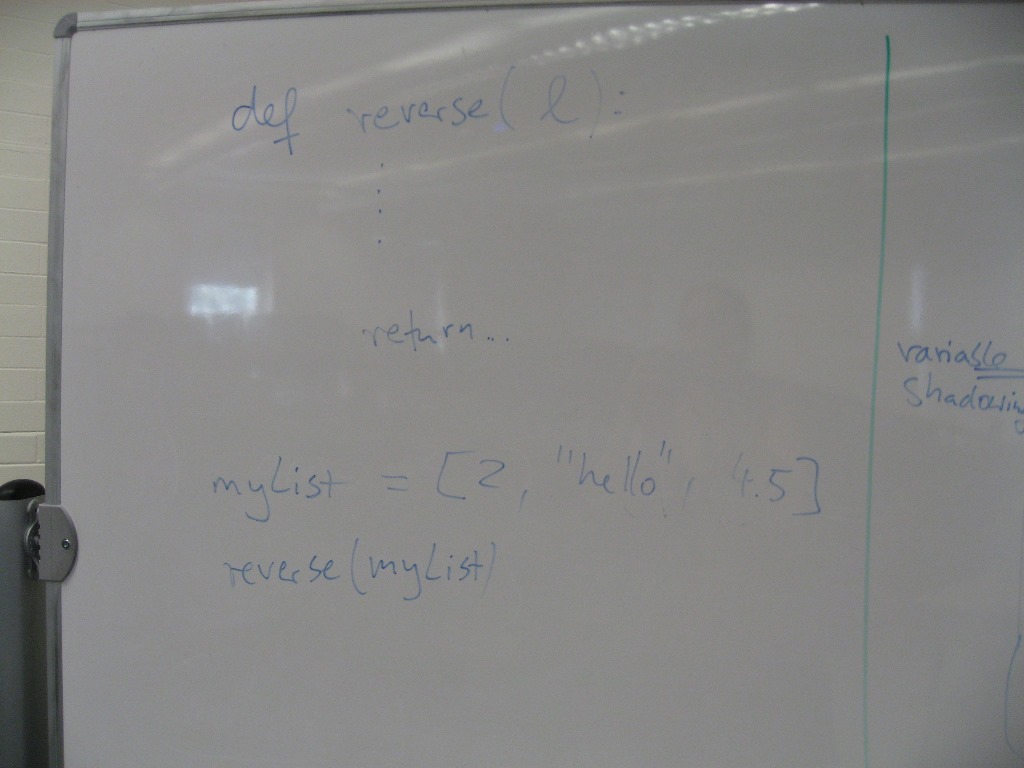 def reverse(l):
:
:
return...
myList = [2, "hello", 4.5]
reverse(myList)
variable
shadowing